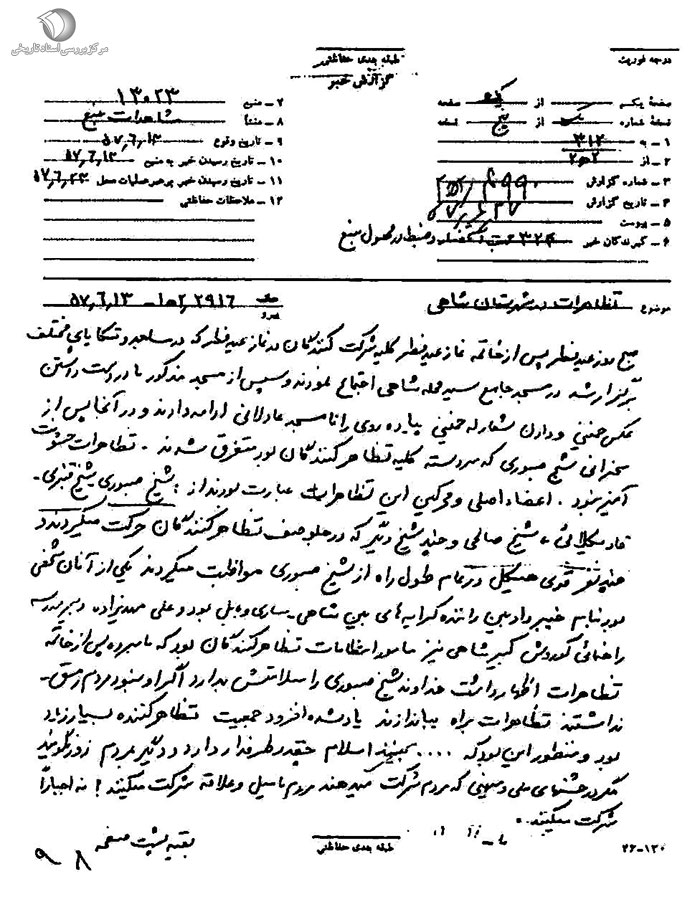 مرکز بررسی اسناد تاریخی
درجه فوریت
طبقه بندی حفاظتی
گزارش خبر
صفحه یکم از صفحه
نسخه شماره از پنج نسخه
۱ - به ۳۱۲
۲ - از ۲ ه‍ ۲
۳ - شماره گزارش ۶۹۹۰
۴ - تاریخ گزارش
۵ - پیوست
۶ - گیرندگان خبر ۳۲۴
۷ - منبع ۱۳۰۲۳
۸ - منشأ مشاهدات منبع
۹ - تاریخ وقوع ۵۷٫۶٫۱۳
۱۰ - تاریخ رسیدن خبر به منبع ۵۷٫۶٫۱۳
۱۱ - تاریخ رسیدن خبر به رهبر عملیات محل ۵۷٫۶٫۲۳
۱۲ - ملاحظات حفاظتی
موضوع تظاهرات در شهرستان شاهی
عطف پیرو ۲۹۱۶ ۲ ه‍ ۱ - ۵۷٫۶٫۱۳
صبح روز عید فطر پس از خاتمه نماز عید فطر کلیه شرکت کنندگان در نماز عید فطر که در مساجد و تکایای مختلف
برگزار شد در مسجد جامع سید محله شاهی اجتماع نمودند و سپس از مسجد مذکور با در دست داشتن
عکس خمینی و دادن شعار له خمینی پیاده روی را تا مسجد عادلانی ادامه دادند و در آنجا پس از
سخنرانی شیخ صبوری که سر دسته کلیه تظاهر کنندگان بود متفرق شدند . تظاهرات خشونت
آمیز نبود . اعضاء اصلی و محرکین این تظاهرات عبارت بودند از : شیخ صبوری شیخ قنبری -
شیخ صالحی و چند شیخ دیگر که در جلو صف تظاهر کنندگان حرکت میکردند و
چند نفر قوی هیکل در تمام طول راه از شیخ صبوری مواظبت میکردند یکی از آنان شخصی
بود بنام راننده کرایه های بین شاهی - ساری و بابل بود و علی مهدیزاده دبیر مدرسه
راهنمائی کوروش کبیر شاهی نیز مامور انتظامات تظاهر کنندگان بود که نامبرده پس از خاتمه
تظاهرات اظهار داشت خداوند شیخ صبوری را سلامتش بدارد اگر او نبود مردم رمق -
نداشتند تظاهرات براه بیاندازند یاد شده افزود جمعیت تظاهر کننده بسیار زیاد
بود و منظور این بود که .... ببینید اسلام چقدر طرفدار دارد و دیگر بمردم زور نگویند
مگر در جشنهای ملی و میهنی که مردم شرکت میدهند مردم با میل و علاقه شرکت میکنند ! نه اجباراً
شرکت میکنند .
بقیه پشت صفحه
طبقه بندی حفاظتی
۲۶-۱۳۰
۹ ۸